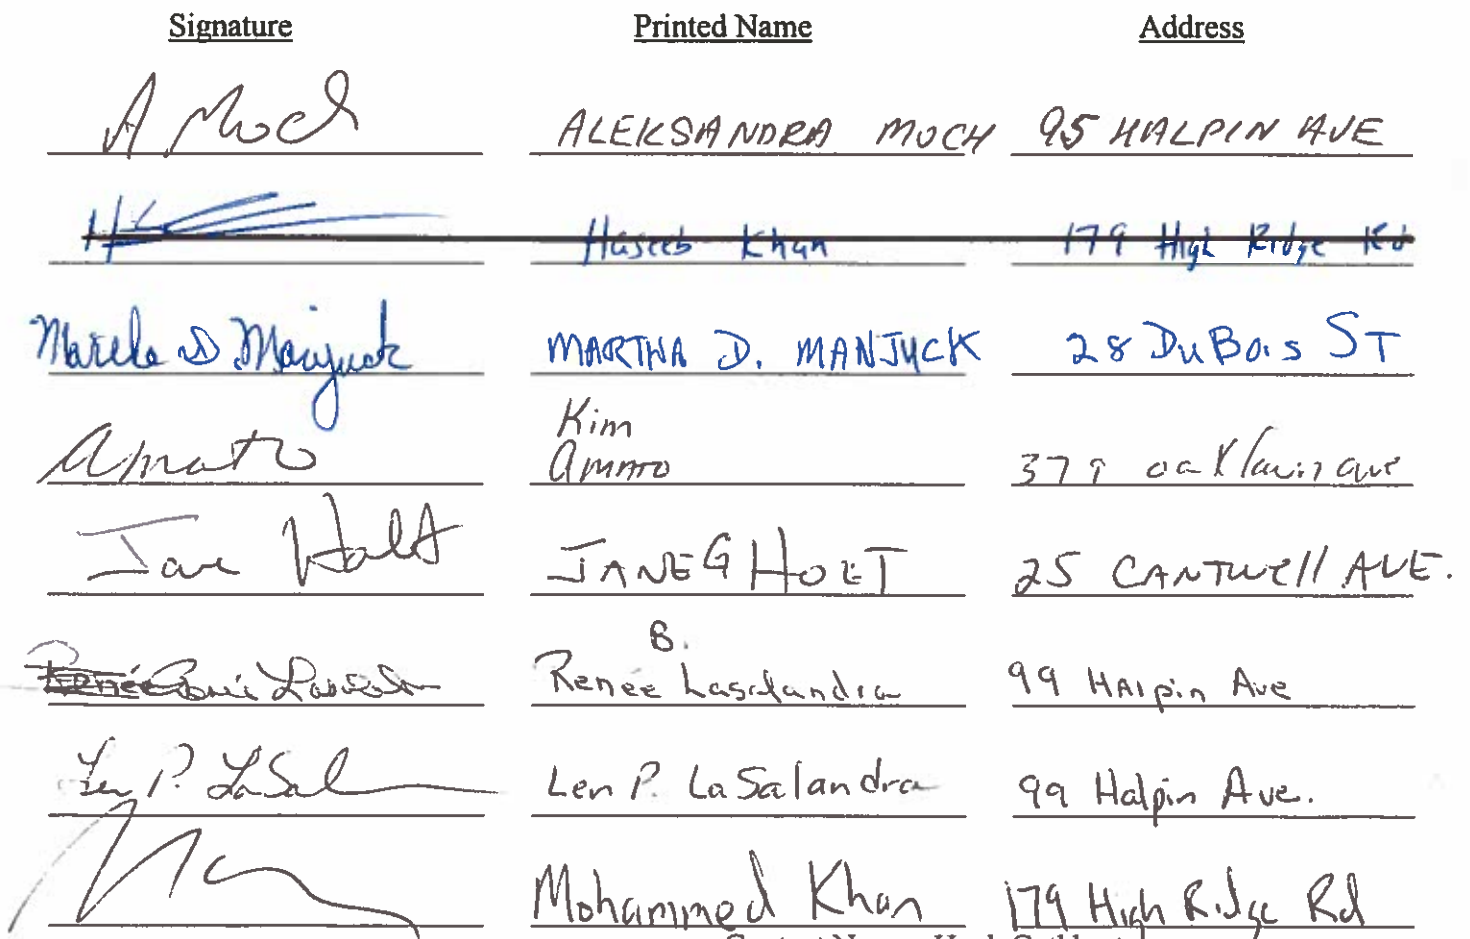 Signature Printed Name Address
A Moch ALEKSANDRA MOCH 95 HALPIN AVE
Haseeb Khan 179 High Ridge Rd
Martha D Manjuck MARTHA D. MANJUCK 28 DuBois ST
Kim
Amato Amato 379 oaklawn ave
Jane Holt JANE G HOLT 25 CANTWell AVE.
B.
Renée Renée LaSalandra Renée Lasalandra 99 HAlpin Ave
Len P. LaSal Len P. LaSalandra 99 Halpin Ave.
Mohammed Khan 179 High Ridge Rd